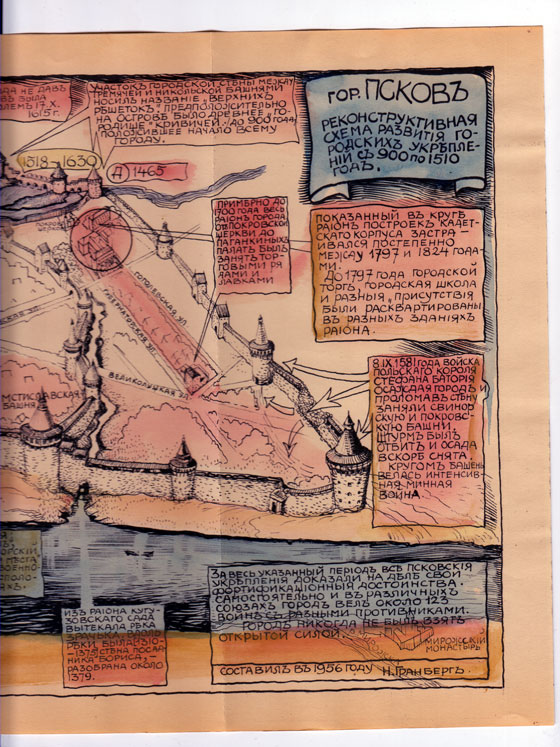 ДА НЕ ДАВЪ
ВЪ БЫЛА
ОЛЕМЪ 17.X.
1615 г.
УЧАСТОКЪ ГОРОДСКОЙ СТѢНЫ МЕЖДУ
ГРЕМЯЧЕЙ И НИКОЛЬСКОЙ БАШНЯМИ
НОСИЛЪ НАЗВАНІЕ „ВЕРХНИХЪ
РѢШЕТОКЪ". ПРЕДПОЛОЖИТЕЛЬНО
НА ОСТРОВѢ БЫЛО ДРЕВНЕЕ ГО-
РОДИЩЕ „КРИВИЧЕЙ" /ДО 900 ГОДА/
ПОЛОЖИВШЕЕ НАЧАЛО ВСЕМУ
ГОРОДУ.
ГОР. ПСКОВЪ
РЕКОНСТРУКТИВНАЯ
СХЕМА РАЗВИТІЯ ГО-
РОДСКИХЪ УКРѢПЛЕ-
НІЙ СЪ 900 ПО 1510
ГОДЪ.
1318-1630
Д) 1465
ПРИМѢРНО ДО
1700 ГОДА ВЕСЬ
РАІОНЪ ГОРОДА
ОТЪ ПОКРОВСКОЙ
ЦЕРКВИ ДО
ПАГАНКИНЫХЪ
ПАЛАТЪ БЫЛЪ
ЗАНЯТЪ ТОР-
ГОВЫМИ РЯ
ДАМИ И
ЛАВКАМИ
ПОКАЗАННЫЙ ВЪ КРУГѢ
РАІОНЪ ПОСТРОЕКЪ КАДЕТ-
СКАГО КОРПУСА ЗАСТРА-
ИВАЛСЯ ПОСТЕПЕННО
МЕЖДУ 1797 И 1824 ГОДА-
МИ.
ДО 1797 ГОДА ГОРОДСКОЙ
ТОРГЪ, ГОРОДСКАЯ ШКОЛА
И РАЗНЫЯ „ПРИСУТСТВІЯ
БЫЛИ РАСКВАРТИРОВАНЫ
ВЪ РАЗНЫХЪ ЗДАНІЯХЪ
РАІОНА.
ВЕЛИКОЛУЦКАЯ УЛ.
МСТИСЛАВСКАЯ
БАШНЯ
8 IX 1581 ГОДА ВОЙСКА
ПОЛЬСКАГО КОРОЛЯ
СТЕФАНА БАТОРІЯ
ОСАЖДАЯ ГОРОДЪ И
ПРОЛОМАВЪ СТѢНУ
ЗАНЯЛИ СВИНОР-
СКУЮ И ПОКРОВС-
КУЮ БАШНИ.
ШТУРМЪ БЫЛЪ
ОТБИТЪ И ОСАДА
ВСКОРѢ СНЯТА.
КРУГОМЪ БАШЕНЬ
ВЕЛАСЬ ИНТЕНСИВ-
НАЯ МИННАЯ
ВОЙНА.
ИЗЪ РАІОНА КУТУ-
ЗОВСКАГО САДА
ВЫТЕКАЛА РѢКА
-1375 СТѢНА ПОСАД-
НИКА "БОРИСА", -
РАЗОБРАНА ОКОЛО
1379.
ЗА ВЕСЬ УКАЗАННЫЙ ПЕРІОДЪ ВСѢ ПСКОВСКІЯ
УКРѢПЛЕНІЯ ДОКАЗАЛИ НА ДѢЛѢ СВОИ
ФОРТИФИКАЦІОННЫЯ ДОСТОИНСТВА.
САМОСТОЯТЕЛЬНО И ВЪ РАЗЛИЧНЫХЪ
СОЮЗАХЪ ГОРОДЪ ВЕЛЪ ОКОЛО 123
ВОЙНЪ СЪ РАЗНЫМИ ПРОТИВНИКАМИ.
ГОРОДЪ НИКОГДА НЕ БЫЛЪ ВЗЯТЪ
ОТКРЫТОЙ СИЛОЙ.
МИРОЖСКІЙ
МОНАСТЫРЬ
СОСТАВИЛЪ ВЪ 1956 ГОДУ Н. ГРАНБЕРГЪ